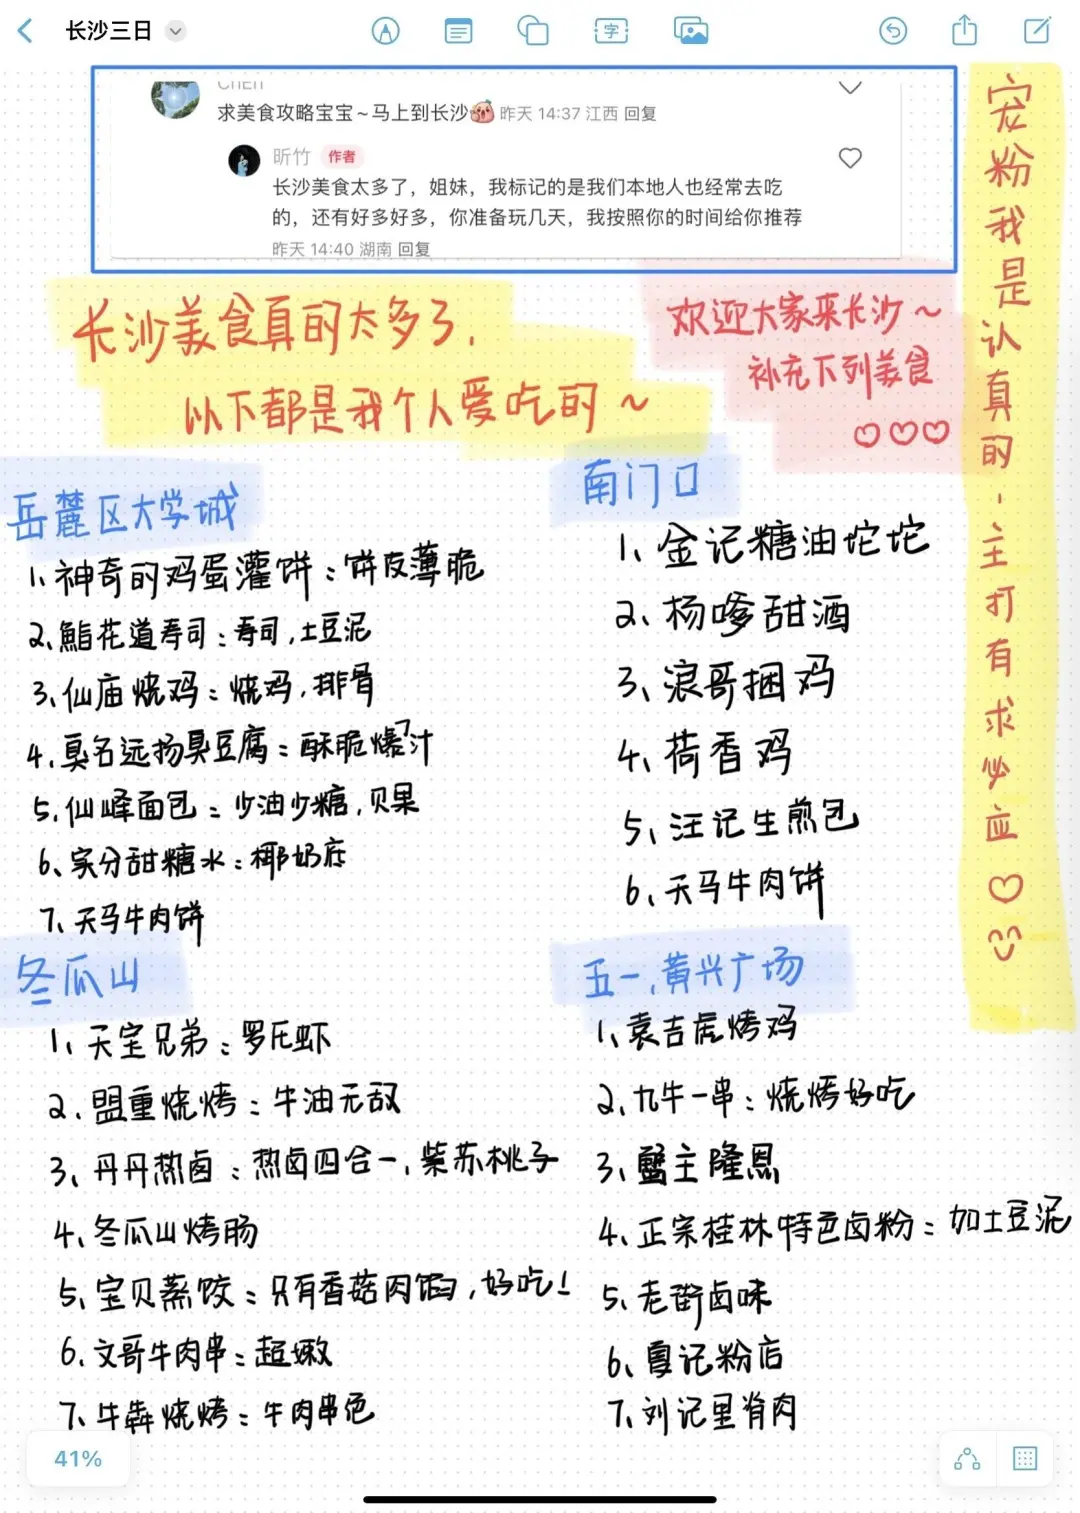 长沙三日
字
求美食攻略宝宝~马上到长沙 昨天 14:37 江西 回复
昕竹 作者
长沙美食太多了，姐妹，我标记的是我们本地人也经常去吃
的，还有好多好多，你准备玩几天，我按照你的时间给你推荐
昨天 14:40 湖南 回复
长沙美食真的太多了，
以下都是我个人爱吃的～
欢迎大家来长沙～
补充下列美食
宠粉我是认真的，主打有求必应
岳麓区大学城
1、神奇的鸡蛋灌饼：饼皮薄脆
2、鮨花道寿司：寿司，土豆泥
3、仙庙烧鸡：烧鸡，排骨
4、臭名远扬臭豆腐：酥脆爆汁
5、仙峰面包：少油少糖，贝果
6、实分甜糖水：椰奶底
7、天马牛肉饼
南门口
1、金记糖油坨坨
2、杨嗲甜酒
3、浪哥捆鸡
4、荷香鸡
5、汪记生煎包
6、天马牛肉饼
冬瓜山
1、天宝兄弟：罗氏虾
2、盟重烧烤：牛油无敌
3、丹丹热卤：热卤四合一，紫苏桃子
4、冬瓜山烤肠
5、宝贝蒸饺：只有香菇肉馅，好吃！
6、文哥牛肉串：超嫩
7、牛犇烧烤：牛肉串包
五一，黄兴广场
1、袁吉虎烤鸡
2、九牛一串：烧烤好吃
3、蟹主隆恩
4、正宗桂林特色卤粉：加土豆泥
5、老街卤味
6、夏记粉店
7、刘记里脊肉
41%